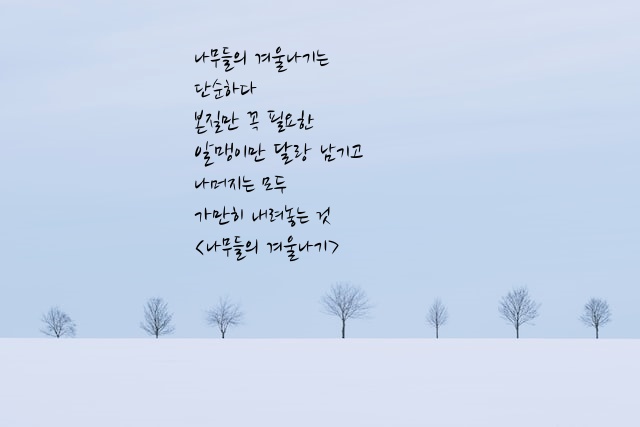 나무들의 겨울나기는
단순하다
본질만 꼭 필요한
알맹이만 달랑 남기고
나머지는 모두
가만히 내려놓는 것
<나무들의 겨울나기>